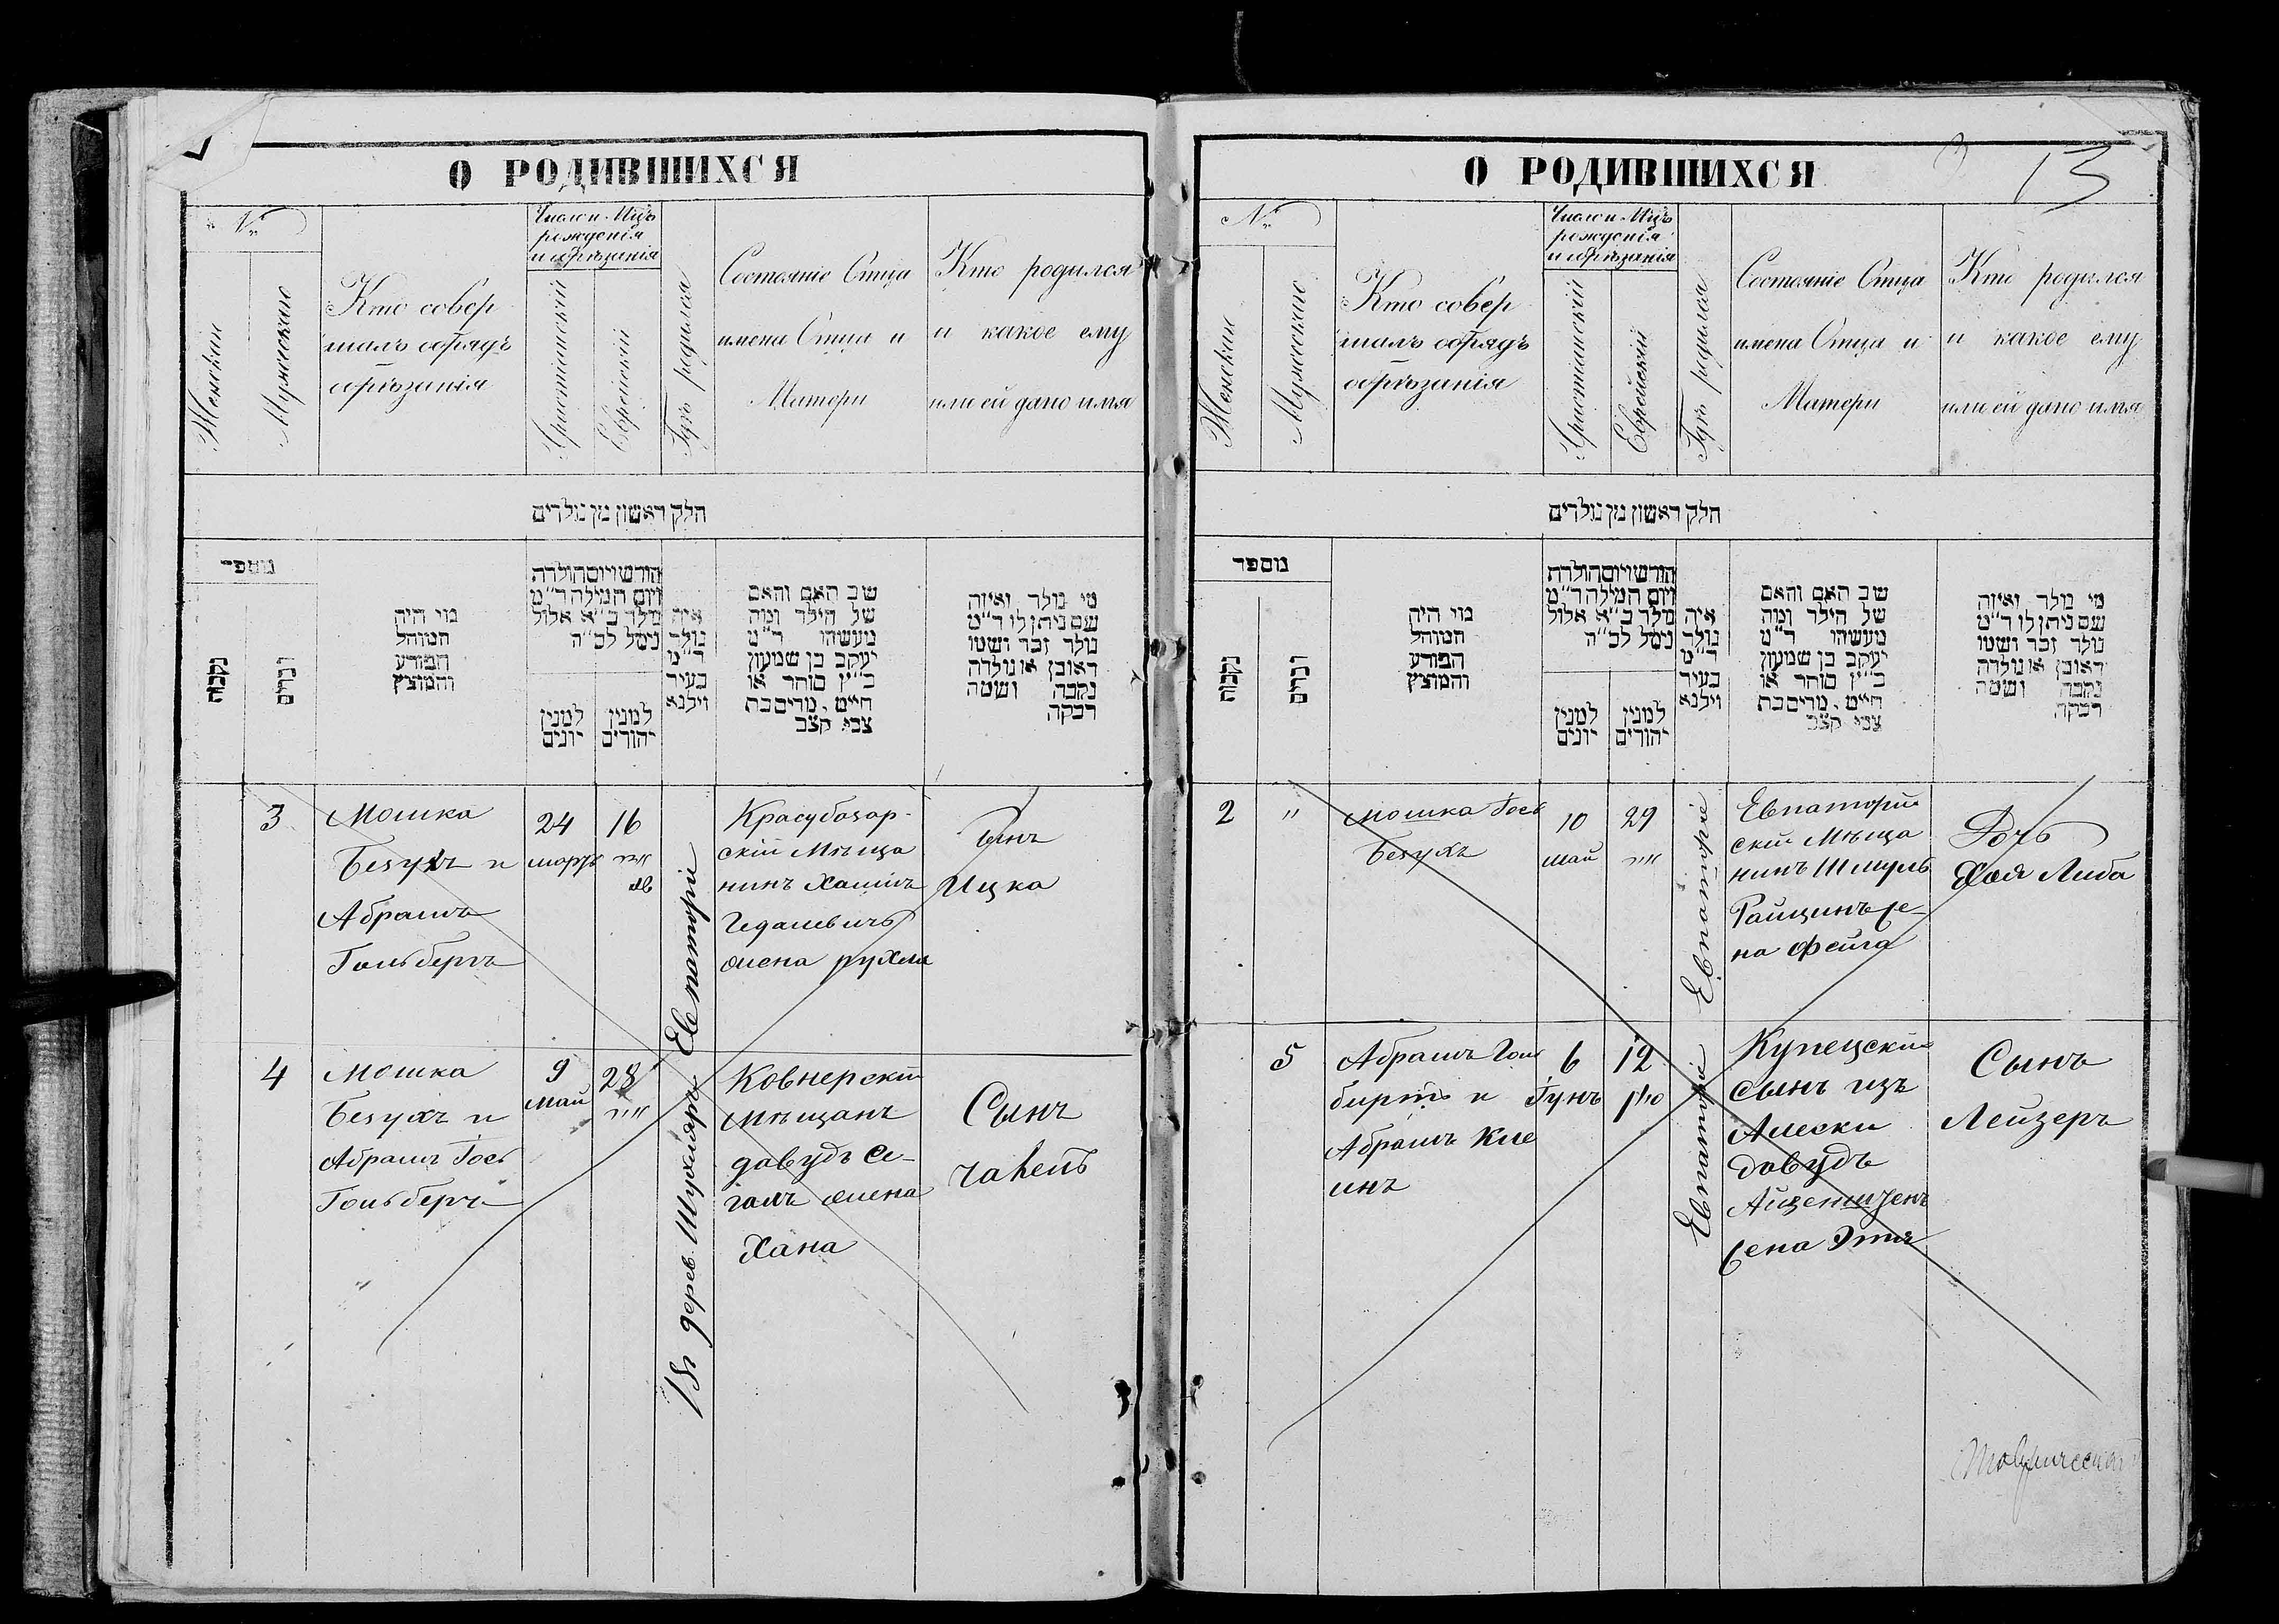 О РОДИВШИХСЯ
№
Женскаго
Мужескаго
Кто совер
шалъ обрядъ
обрѣзанія
Число и Мцъ
рожденія
и обрѣзанія
Христіанскій
Еврейскій
Гдѣ родился
Состояніе Отца
имена Отца и
Матери
Кто родился
и какое ему
или ей дано имя
חלק ראשון מן נולדים
מוספר
נקבות
זכרים
מי היה
המוהל
הפורע
והמוצץ
חודש ויום הולדת
ויום המילה ד״מ
נולד כ״א אלול
נימל לכ״ה
למנין
יונים
למנין
יהודים
איה
נולד
ד״מ
בעיר
וילנא
שב האם והאם
של הילד ומה
מעשהו ד״מ
יעקב בן שמעון
כ״ץ סוחר או
חייט . מרים בת
צבי קצב
מי נולד ואיזה
שם ניתן לו ד״מ
נולד זכר ושמו
ראובן או נולדה
נקבה ושמה
רבקה
3
Мошка
Безухъ и
Абрамъ
Гольберъ
24
мартъ
16
Евпаторіе
Красубазар-
скій Мѣща
нинъ Хаимъ
Гедалевичъ
жена рухля
Сынъ
Ицка
4
Мошка
Безухъ и
Абрамъ Гось
Гольберъ
9
Май
28
אייר
Въ дерев.
Ковнерскій
мѣщанъ
давудъ Се-
галъ жена
Хана
Сынъ
О РОДИВШИХСЯ
13
№
Женскаго
Мужескаго
Кто совер
шалъ обрядъ
обрѣзанія
Число и Мцъ
рожденія
и обрѣзанія
Христіанскій
Еврейскій
Гдѣ родился
Состояніе Отца
имена Отца и
Матери
Кто родился
и какое ему
или ей дано имя
חלק ראשון מן נולדים
מוספר
נקבות
זכרים
מי היה
המוהל
הפורע
והמוצץ
חודש ויום הולדת
ויום המילה ד״מ
נולד כ״א אלול
נימל לכ״ה
למנין
יונים
למנין
יהודים
איה
נולד
ד״מ
בעיר
וילנא
שב האם והאם
של הילד ומה
מעשהו ד״מ
יעקב בן שמעון
כ״ץ סוחר או
חייט . מרים בת
צבי קצב
מי נולד ואיזה
שם ניתן לו ד״מ
נולד זכר ושמו
ראובן או נולדה
נקבה ושמה
רבקה
2
"
мошка Гось
Безухъ
10
май
29
אייר
Евпаторіе
Евпаторій
скій Мѣща
нинъ Шмуль
Райцинъ же-
на Фейга
Дочь
Хая Либа
5
Абрамъ Гол
бирт и
Абрамъ Кле
инъ
6
Іунъ
12
סיון
Евпаторіе
Купецскій
сынъ изъ
Алески
Давудъ
жена Этля
Сынъ
Лейзеръ